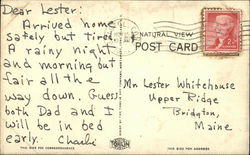 Dear Lester:
Arrived home
safely but tired.
A rainy night
and morning but
fair all the
way down. Guess
both Dad and I
will be in bed
early. Charlie
THIS SIDE FOR CORRESPONDENCE
NATURAL VIEW
POST CARD
Mr Lester Whitehouse
Upper Ridge
Bridgton,
Maine